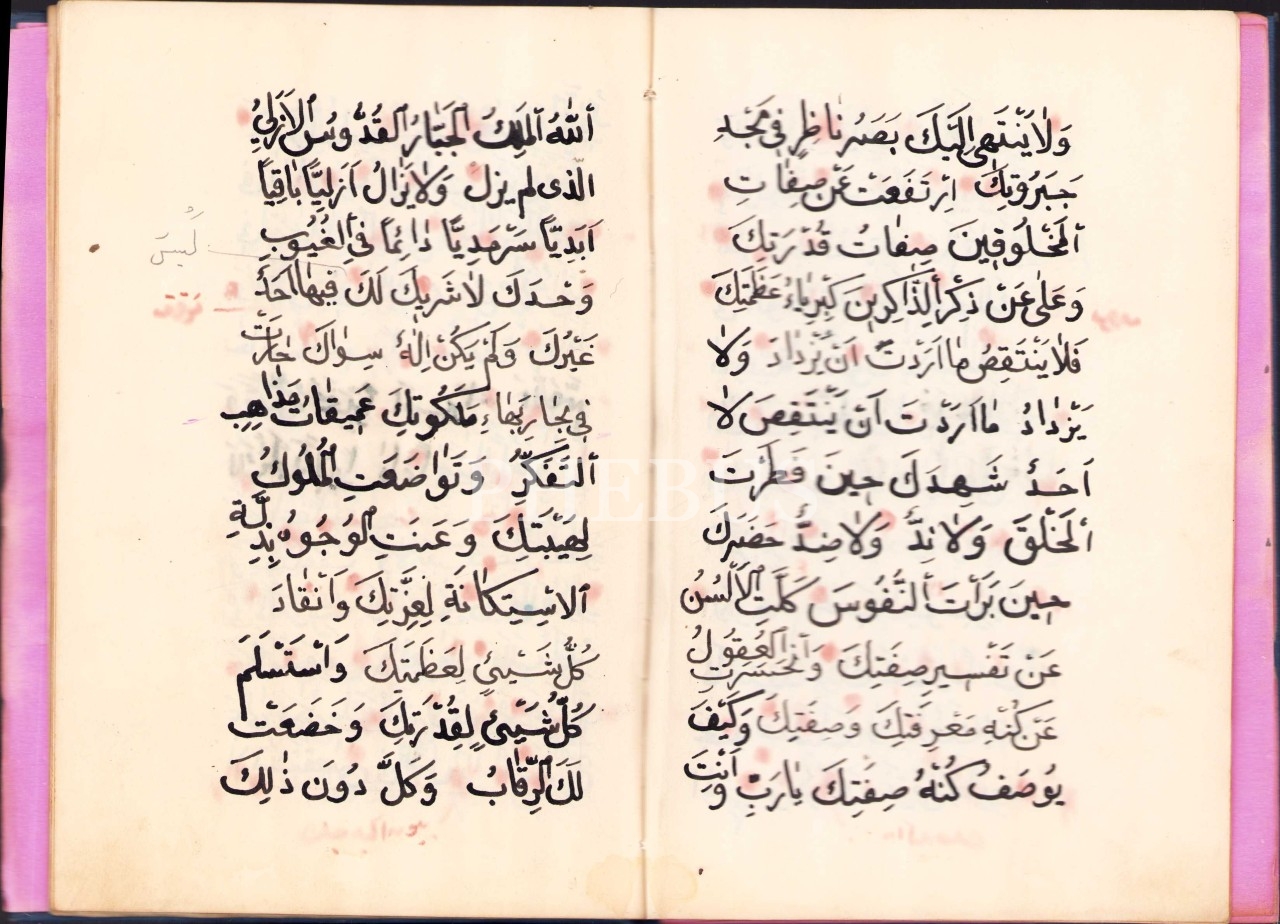 وَلاٰ يَنْتَهىٖ اِلَيْكَ بَصَرُ نٰاظِرٍ فىٖ مَجْدِ
جَبَرُوتِكَ اِرْتَفَعَتْ عَنْ صِفٰاتِ
ٱلْمَخْلُوقٖينَ صِفٰاتُ قُدْرَتِكَ
وَعَلىٰ عَنْ ذِكْرِ ٱلذّٰاكِرٖينَ كِبْرِيٰاءُ عَظَمَتِكَ
فَلاٰ يَنْتَقِصُ مٰا اَرَدْتَ اَنْ يَزْدٰادَ وَلاٰ
يَزْدٰادُ مٰا اَرَدْتَ اَنْ يَنْتَقِصَ لاٰ
اَحَدٌ شَهِدَكَ حٖينَ فَطَرْتَ
ٱلْخَلْقَ وَلاٰ نِدٌّ وَلاٰ ضِدٌّ حَضَرَكَ
حٖينَ بَرَأْتَ ٱلنُّفُوسَ كَلَّتِ ٱلْاَلْسُنُ
عَنْ تَفْسٖيرِ صِفَتِكَ وَٱنْحَسَرَتِ ٱلْعُقُولُ
عَنْ كُنْهِ مَعْرِفَتِكَ وَصِفَتِكَ وَكَيْفَ
يُوصَفُ كُنْهُ صِفَتِكَ يٰا رَبِّ وَاَنْتَ
ٱللّٰهُ ٱلْمَلِكُ ٱلْجَبّٰارُ ٱلْقُدُّوسُ ٱلْاَزَلِيُّ
الَّذى لم يزل وَلاٰ يَزٰالُ اَزَلِيّاً بٰاقِياً
اَبَدِيّاً سَرْمَدِيّاً دٰائِماً فِى ٱلْغُيُوبِ
وَحْدَكَ لاٰ شَرٖيكَ لَكَ لَيْسَ فٖيهٰا اَحَدٌ
غَيْرُكَ وَلَمْ يَكُنْ اِلٰهٌ سِوٰاكَ حٰارَتْ
فىٖ بِحٰارِ بَهٰاءِ مَلَكُوتِكَ عَمٖيقٰاتُ مَذٰاهِبِ
ٱلتَّفَكُّرِ وَتَوٰاضَعَتِ ٱلْمُلُوكُ
لِهَيْبَتِكَ وَعَنَتِ ٱلْوُجُوهُ بِذِلَّةِ
ٱلاِسْتِكٰانَةِ لِعِزَّتِكَ وَٱنْقٰادَ
كُلُّ شَيْئٍ لِعَظَمَتِكَ وَاْسْتَسْلَمَ
كُلُّ شَيْئٍ لِقُدْرَتِكَ وَخَضَعَتْ
لَكَ ٱلرِّقٰابُ وَكَلَّ دُونَ ذٰلِكَ